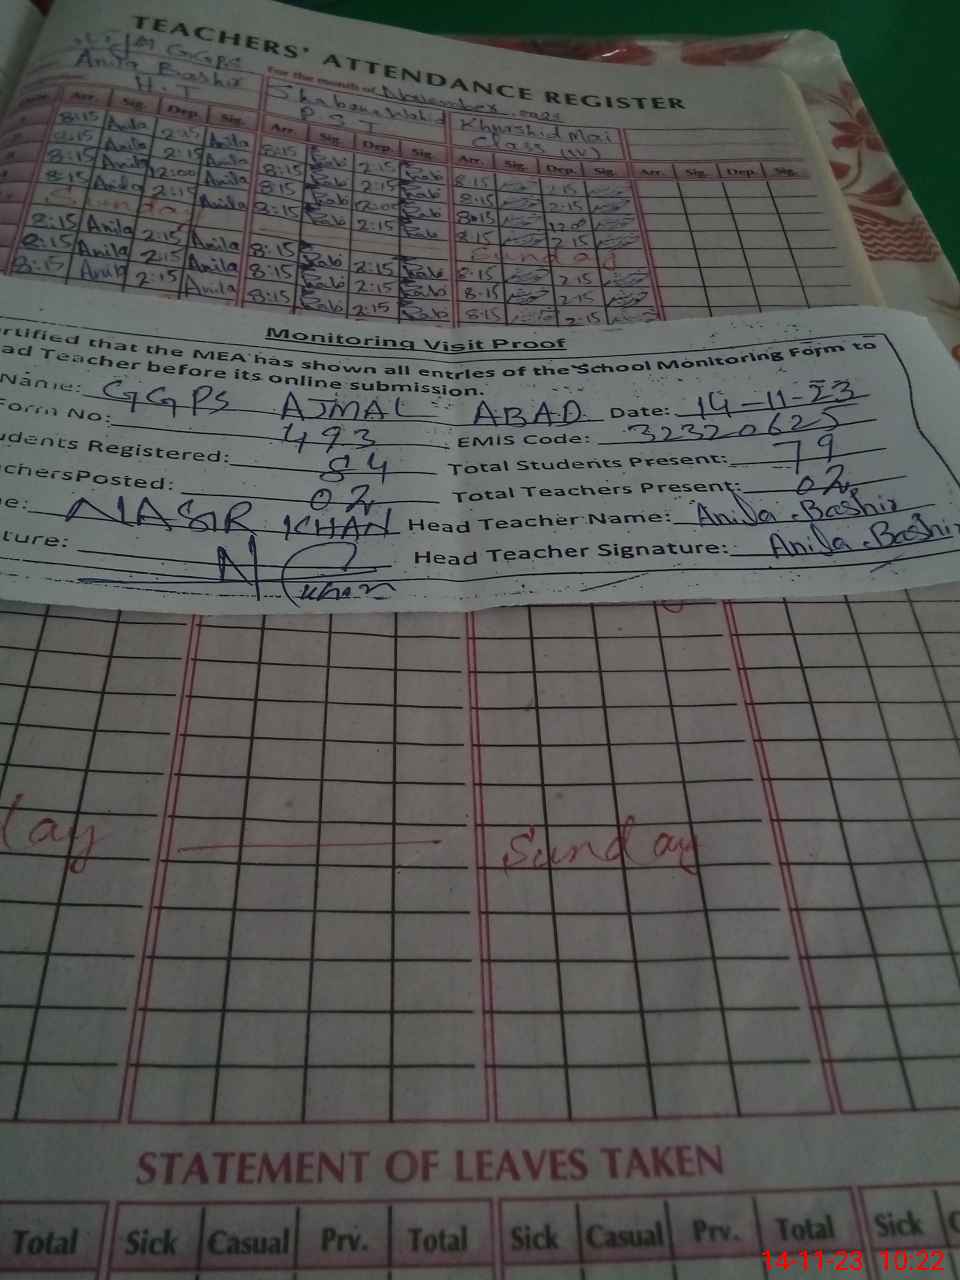 TEACHERS' ATTENDANCE REGISTER
GGPS
Anila Bashir
H.T
For the month of November
P S T
Khurshid Mai
Class (IV)
Arr. Sig. Dep. Sig. Arr. Sig. Dep. Sig. Arr. Sig. Dep. Sig. Arr. Sig. Dep. Sig.
8:15 Anila 2:15 Anila 8:15 2:15 8:15 2:15
8:15 Anila 2:15 Anila 8:15 2:15 8:15 2:15
8:15 Anila 12:00 Anila 8:15 12:00 8:15 1200
8:15 Anila 2:15 Anila 8:15 2:15 8:15 2:15
Sunday Sunday
8:15 Anila 2:15 Anila 8:15 2:15 8:15 2:15
8:15 Anila 2:15 Anila 8:15 2:15 8:15 2:15
8:15 Anila 2:15 Anila 8:15 2:15 8:15 2:15
Monitoring Visit Proof
rtified that the MEA has shown all entries of the School Monitoring Form to
ad Teacher before its online submission.
Name: GGPS AJMAL ABAD Date: 14-11-23
Form No: 493 EMIS Code: 32320625
udents Registered: 84 Total Students Present: 79
chersPosted: 02 Total Teachers Present: 02
e: NASIR KHAN Head Teacher Name: Anila Bashir
ture: N Khan Head Teacher Signature: Anila Bashir
day Sunday
STATEMENT OF LEAVES TAKEN
Total Sick Casual Prv. Total Sick Casual Prv. Total Sick C
14-11-23 10:22